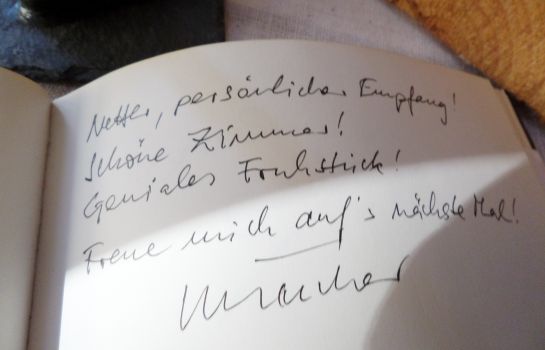 Netter, persönlicher Empfang!
Schöne Zimmer!
Geniales Frühstück!
Freue mich auf's nächste Mal!